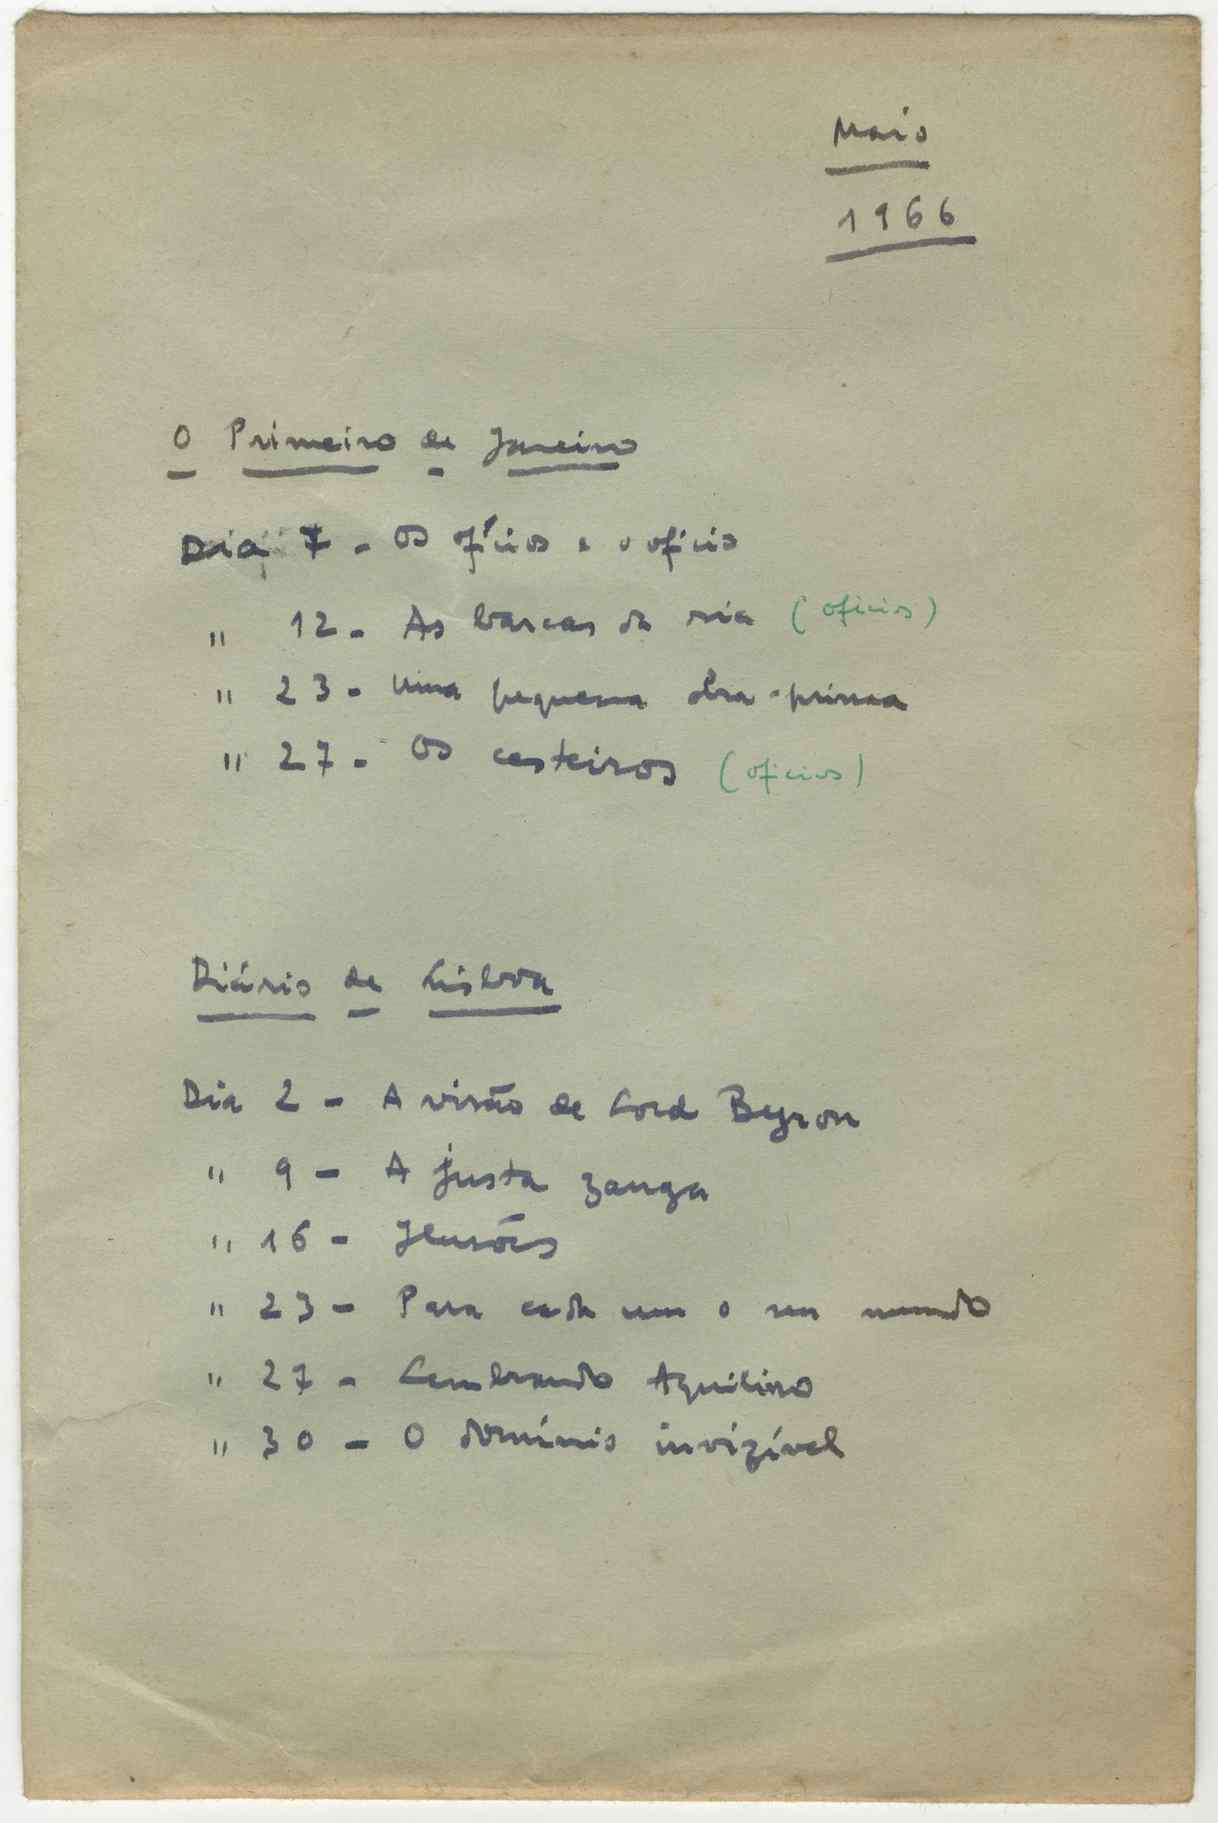 Maio
1966
O Primeiro de Janeiro
Dia 7 - Os ofícios e o ofício
" 12 - As barcas da ria (ofícios)
" 23 - Uma pequena obra-prima
" 27 - Os cesteiros (ofícios)
Diário de Lisboa
Dia 2 - A visão de Lord Byron
" 9 - A justa zanga
" 16 - Ilusões
" 23 - Para cada um o seu mundo
" 27 - Lembrando Aquilino
" 30 - O domínio invizível